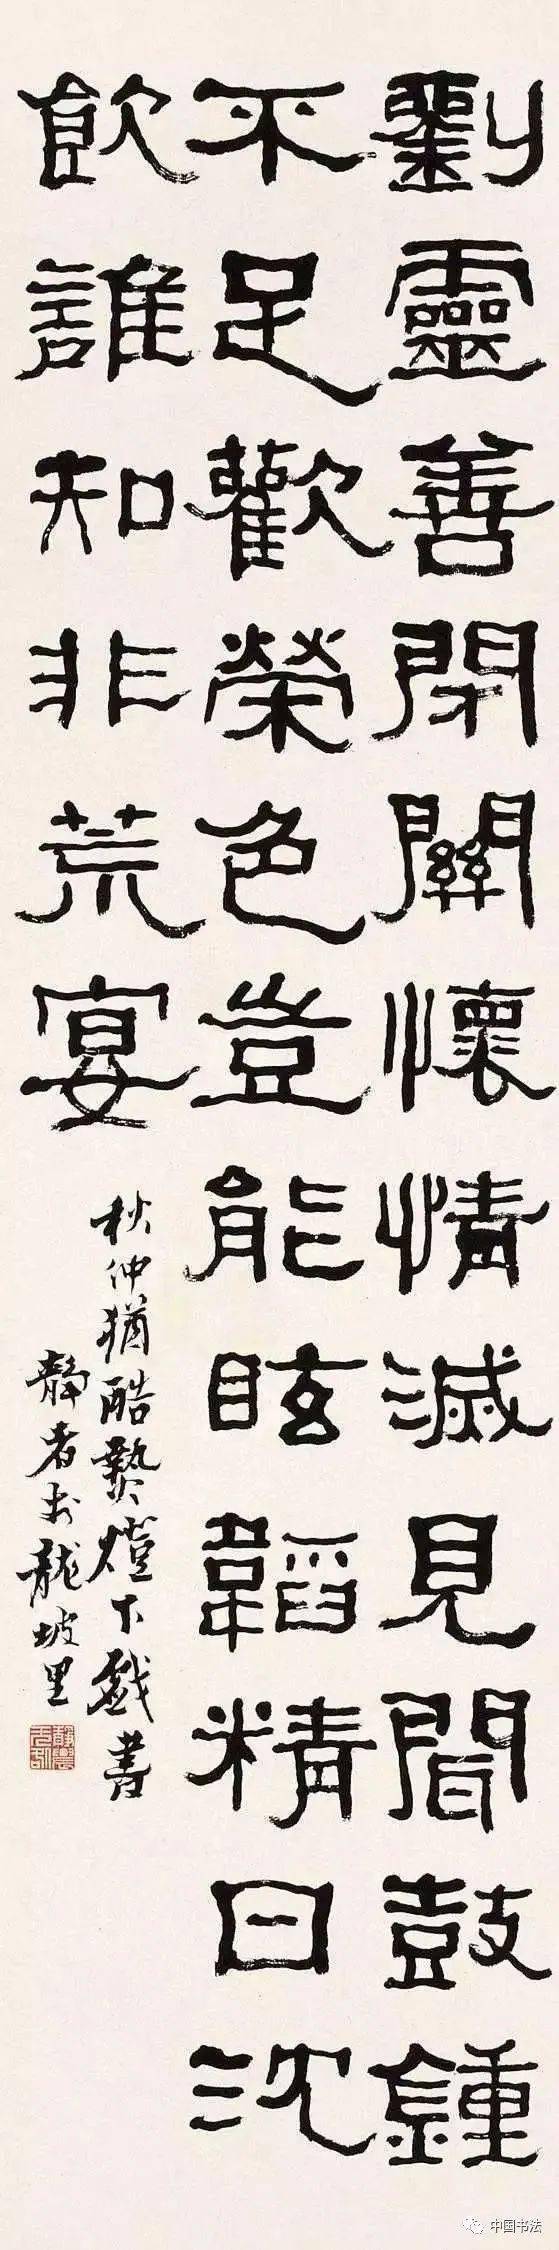 劉靈善閉關懷情滅見聞鼓鍾
不足歡榮色豈能眩韜精日沈
飲誰知非荒宴
秋仲猶酷熱燈下戲書
靜者於龍坡里
中国书法